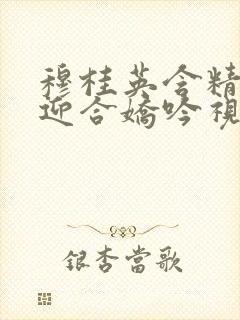 穆桂英含精
迎合嬌吟視
銀杏當歌